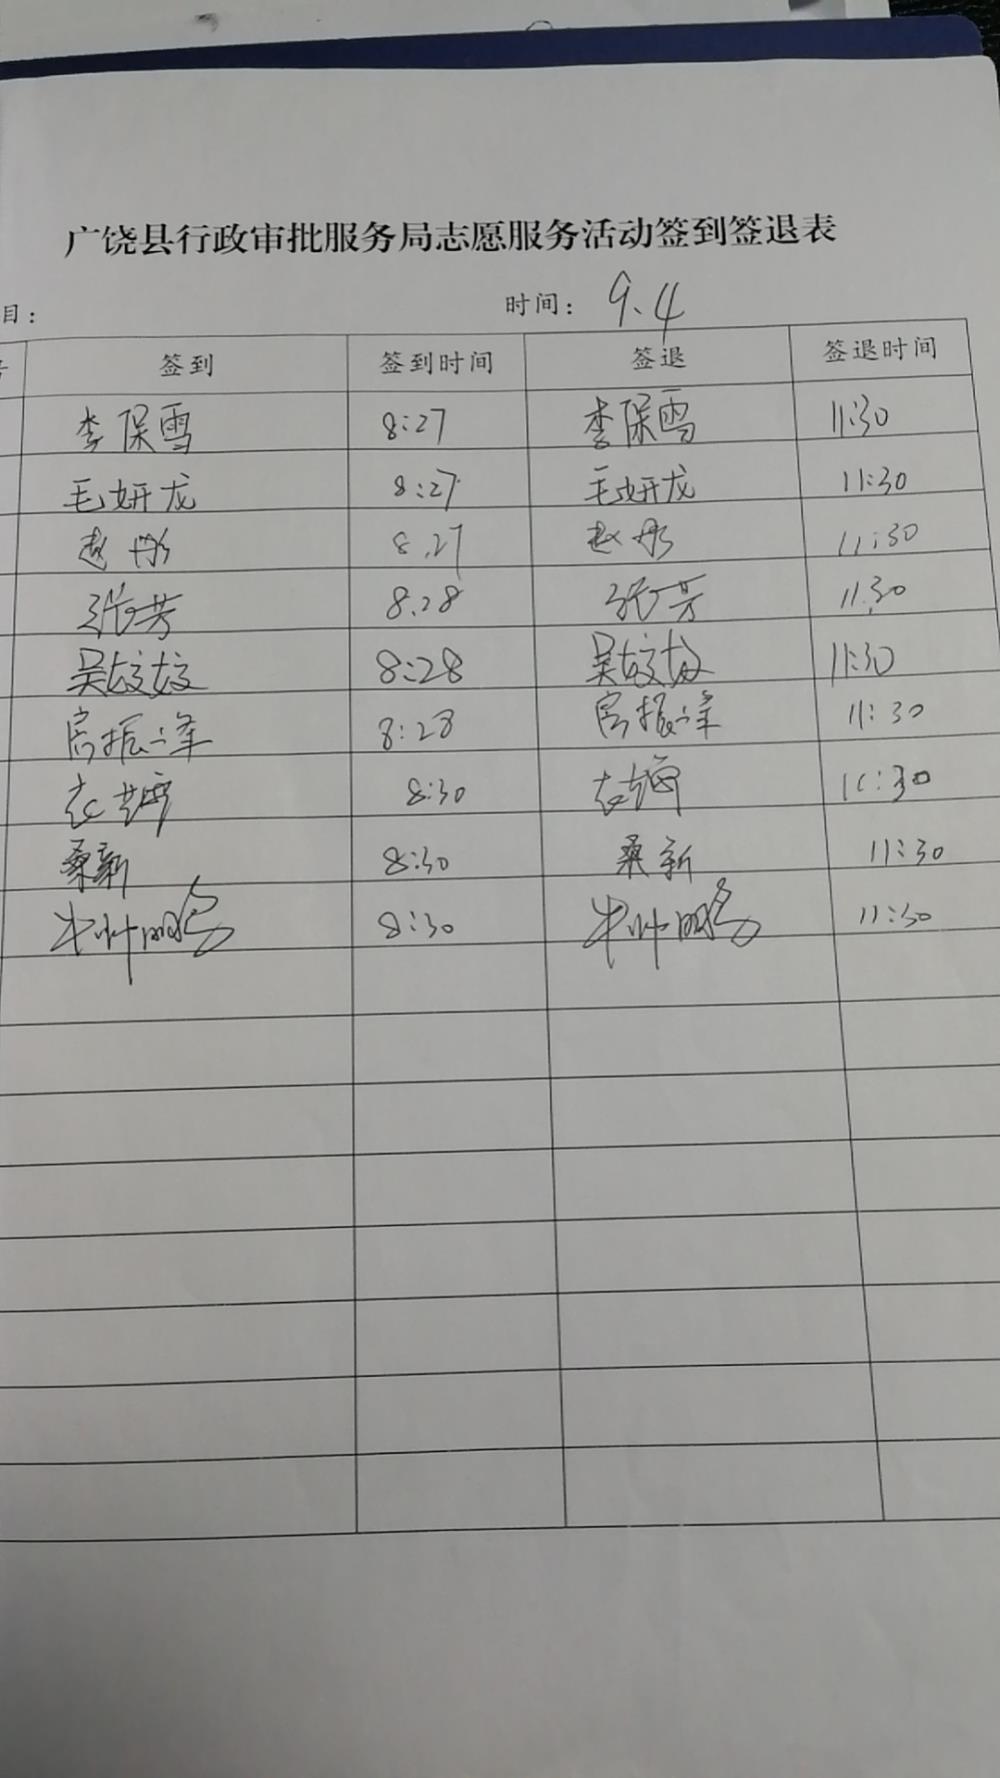 广饶县行政审批服务局志愿服务活动签到签退表
目： 时间：9.4
签到 签到时间 签退 签退时间
李保雪 8:27 李保雪 11:30
毛妍龙 8:27 毛妍龙 11:30
赵彤 8.27 赵彤 11:30
张芳 8.28 张芳 11.30
吴姣姣 8:28 吴姣姣 11:30
房振峰 8:28 房振峰 11:30
衣 8:30 衣 11:30
桑新 8:30 桑新 11:30
8:30 11:30